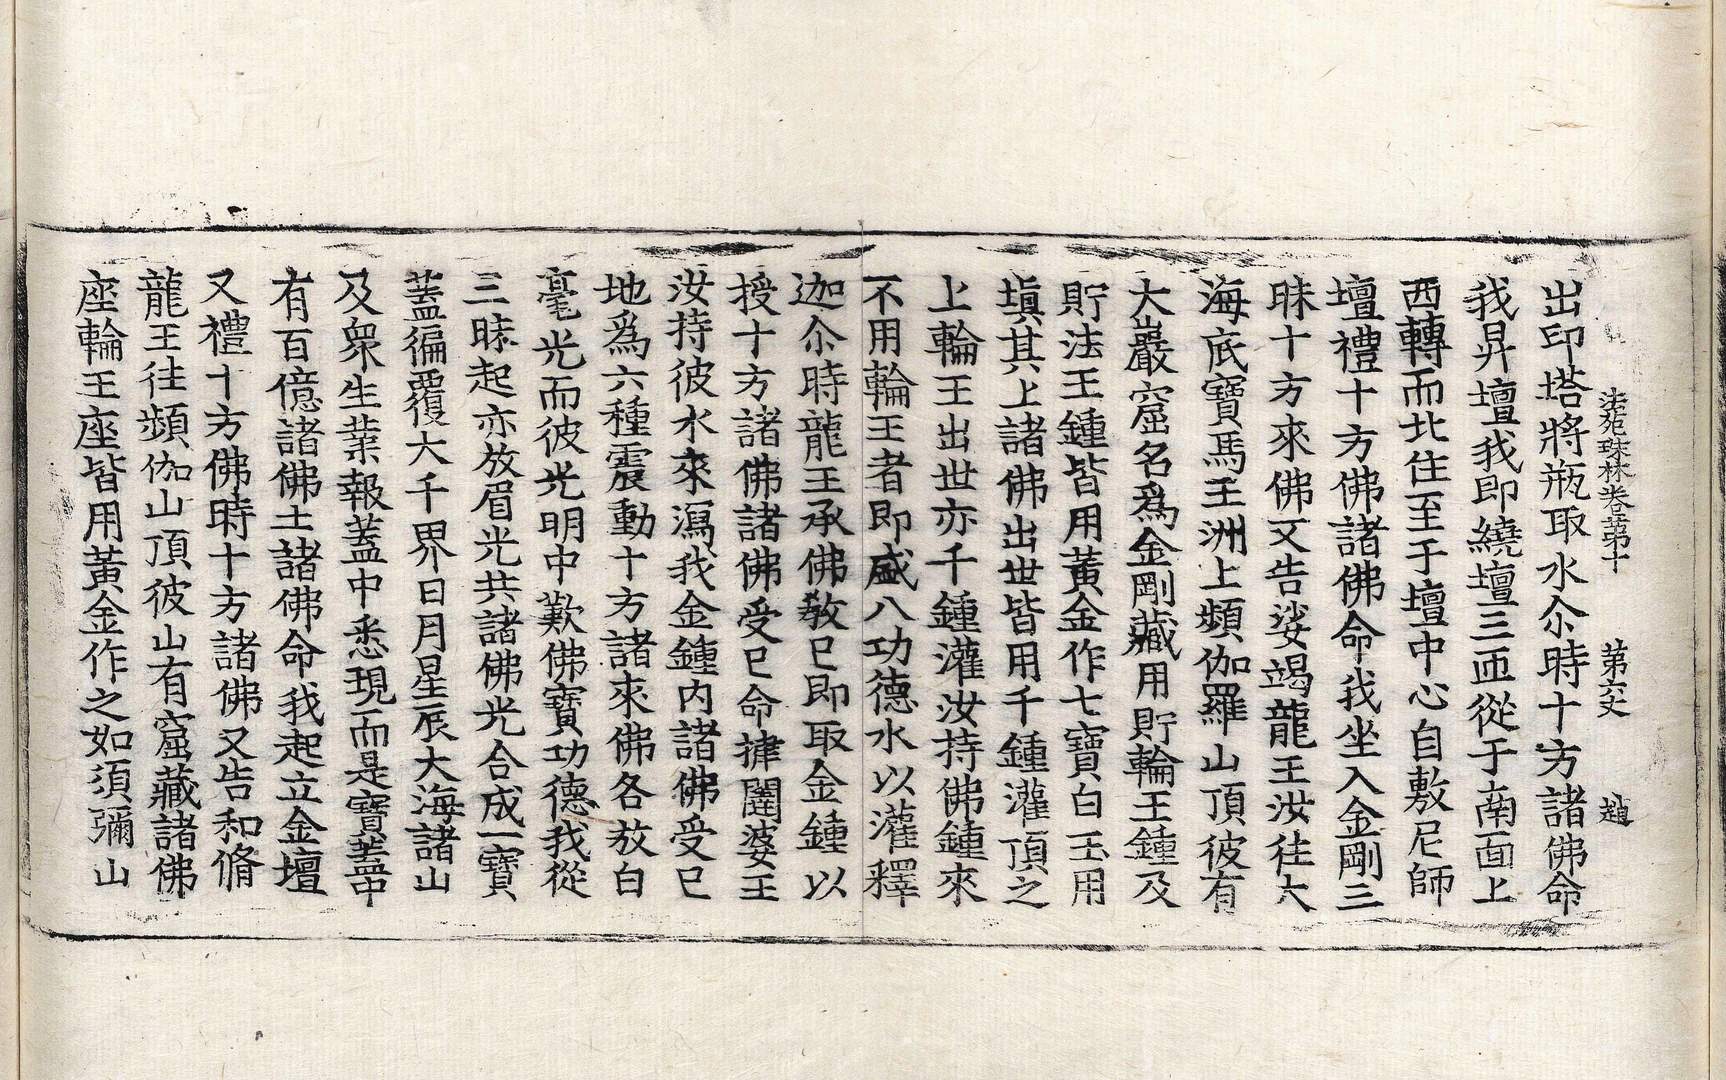 法苑珠林卷第十　第六丈　趙
出印塔將瓶取水尒時十方諸佛命
我昇壇我即繞壇三匝從于南面上
西轉而北住至于壇中心自敷尼師
壇禮十方佛諸佛命我坐入金剛三
昧十方來佛又告娑竭龍王汝往大
海底寶馬王洲上頻伽羅山頂彼有
大巖窟名爲金剛藏用貯輪王鍾及
貯法王鍾皆用黃金作七寶白玉用
塡其上諸佛出世皆用千鍾灌頂之
上輪王出世亦千鍾灌汝持佛鍾來
不用輪王者即盛八功德水以灌釋
迦尒時龍王承佛教已即取金鍾以
授十方諸佛諸佛受已命揵闥婆王
汝持彼水來瀉我金鍾內諸佛受已
地爲六種震動十方諸來佛各放白
毫光而彼光明中歎佛寶功德我從
三昧起亦放眉光共諸佛光合成一寶
蓋徧覆大千界日月星辰大海諸山
及衆生業報蓋中悉現而是寶蓋中
有百億諸佛土諸佛命我起立金壇
又禮十方佛時十方諸佛又告和脩
龍王往頻伽山頂彼山有窟藏諸佛
座輪王座皆用黃金作之如須彌山